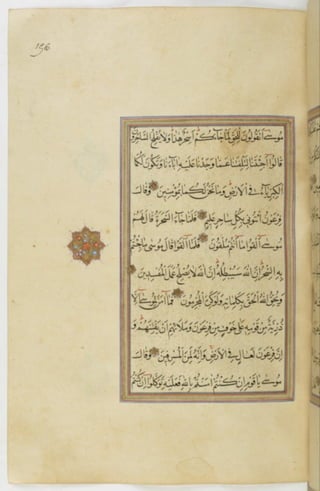 196
موسى أتقولون للحق لما جاءكم أسحر هذا ولا يفلح الساحرون
قالوا أجئتنا لتلفتنا عما وجدنا عليه آباءنا وتكون لكما
الكبرياء في الأرض وما نحن لكما بمؤمنين وقال
فرعون ائتوني بكل ساحر عليم فلما جاء السحرة قال لهم
موسى ألقوا ما أنتم ملقون فلما ألقوا قال موسى ما جئتم
به السحر إن الله سيبطله إن الله لا يصلح عمل المفسدين
ويحق الله الحق بكلماته ولو كره المجرمون فما آمن لموسى إلا
ذرية من قومه على خوف من فرعون وملائهم أن يفتنهم و
إن فرعون لعال في الأرض وإنه لمن المسرفين وقال
موسى يا قوم إن كنتم آمنتم بالله فعليه توكلوا إن كنتم